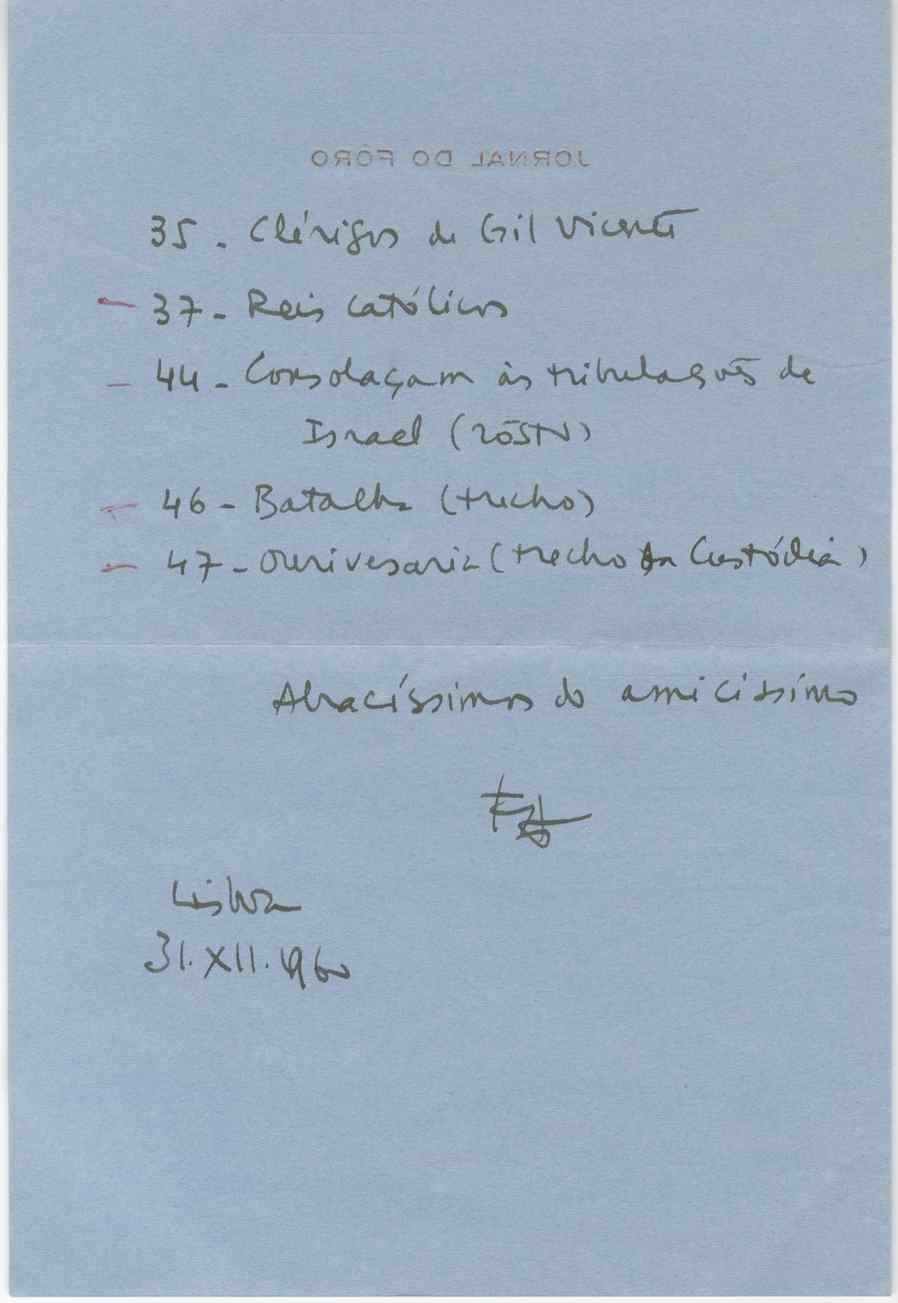 JORNAL DO FÔRO
35. Clérigos de Gil Vicente
- 37- Reis Católicos
- 44- Consolaçam às tribulações de
Israel (
- 46- Batalha (trecho)
- 47- Ourivesaria (trecho da Custódia)
Abracíssimos do amicissímo
Lisboa
31.XII.1960